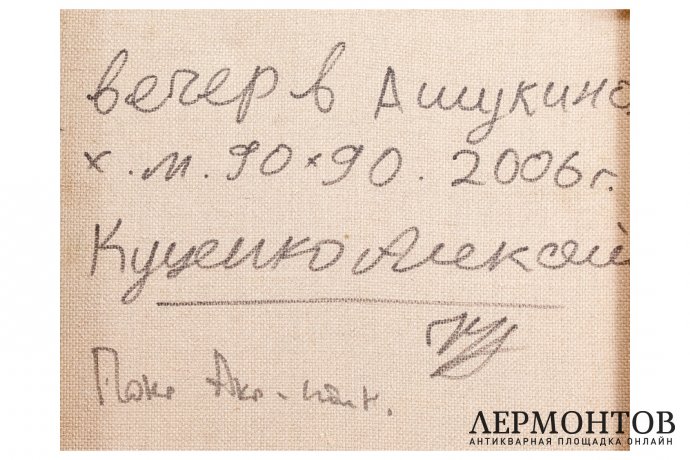 вечер в Ашукино
х.м. 90×90. 2006г.
Куценко Алексей
Покр Акр-
ЛЕРМОНТОВ
АНТИКВАРНАЯ ПЛОЩАДКА ОНЛАЙН